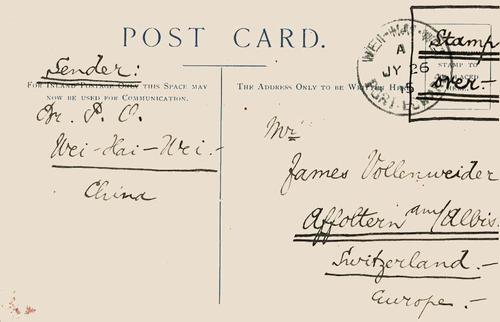 POST CARD.
Sender:
FOR INLAND POSTAGE ONLY THIS SPACE MAY
NOW BE USED FOR COMMUNICATION.
Br. P. O.
Wei-Hai-Wei.-
China
THE ADDRESS ONLY TO BE WRITTEN HERE
WEI-HAI-WEI
A
JY 26
PORT EDWARD
Stamp
STAMP TO
over.-
Mr
James Vollenweider
Affoltern am/Albis.
Switzerland.-
Europe.-